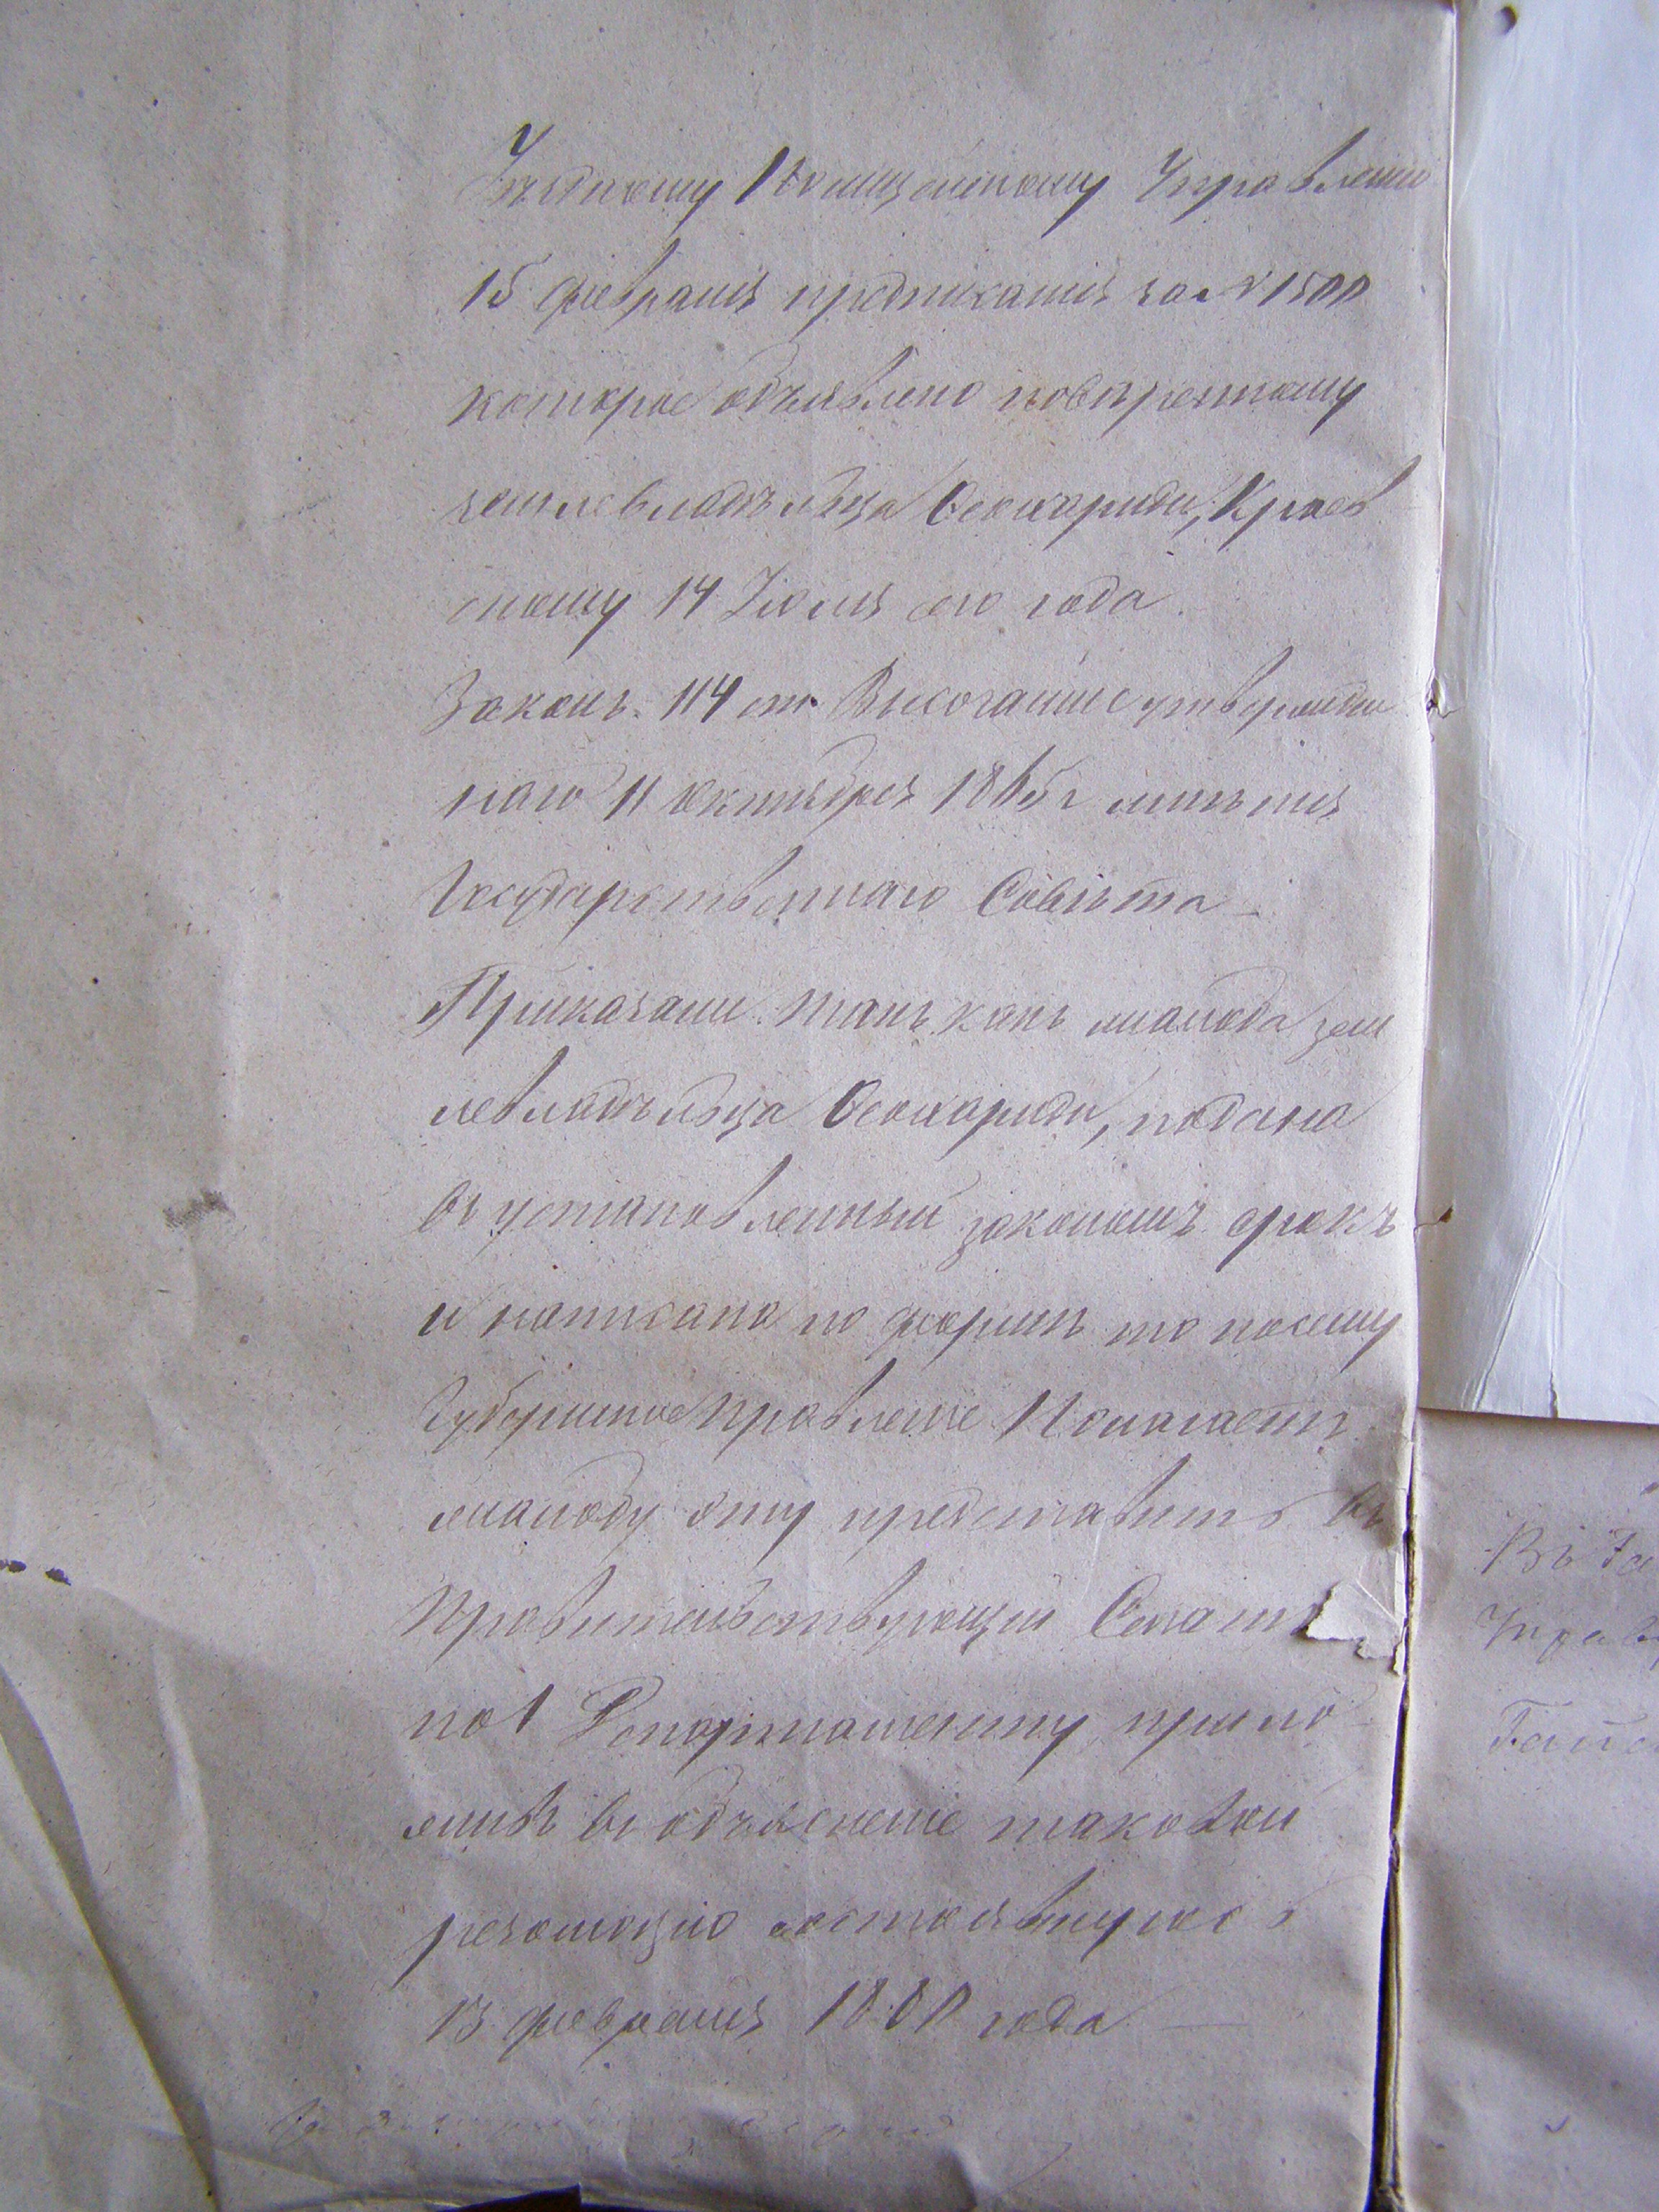 Уѣздному Полицейскому Управленію
15 февраля предписанія за № 1500
которое объявлено повѣренному
землевладѣльца Оеохариди, Краев
скому 14 Іюля сего года.
Законъ. 114 ст. Высочайше утвержден
наго 11 октября 1865 г мнѣнія
Государственнаго Совѣта –
Приказали: такъ какъ жалоба зем
левладѣльца Оеохариди, подана
въ установленный закономъ срокъ
и написана по формѣ то посему
Губернское Правленіе Полагаетъ
жалобу эту представить въ
Правительствующій Сенатъ
по 1 Департаменту, прило
живъ въ объясненіе таковой
резолюцію состоявшуюся
13 февраля 1880 года —
Въ Га
Управ
Гайс